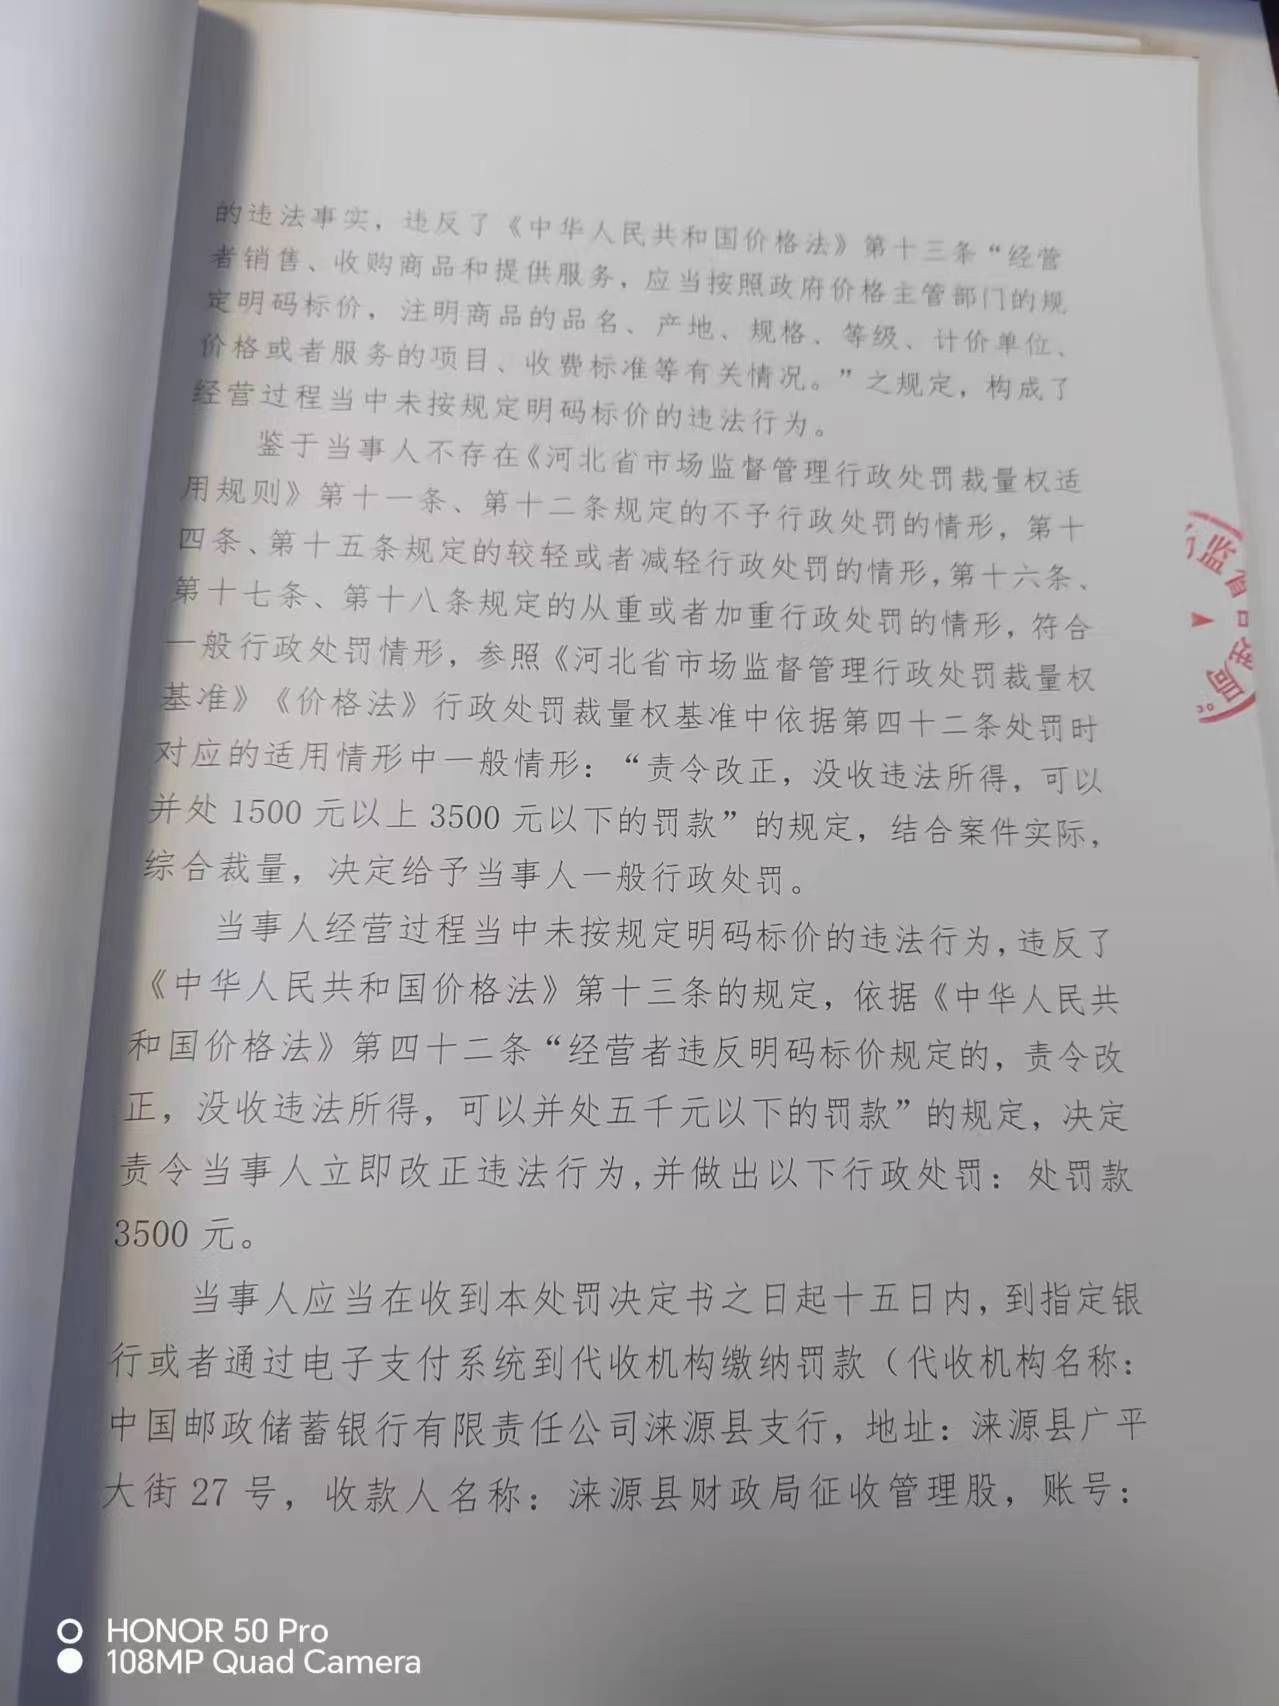 的违法事实，违反了《中华人民共和国价格法》第十三条“经营
者销售、收购商品和提供服务，应当按照政府价格主管部门的规
定明码标价，注明商品的品名、产地、规格、等级、计价单位、
价格或者服务的项目、收费标准等有关情况。”之规定，构成了
经营过程当中未按规定明码标价的违法行为。
鉴于当事人不存在《河北省市场监督管理行政处罚裁量权适
用规则》第十一条、第十二条规定的不予行政处罚的情形，第十
四条、第十五条规定的较轻或者减轻行政处罚的情形，第十六条、
第十七条、第十八条规定的从重或者加重行政处罚的情形，符合
一般行政处罚情形，参照《河北省市场监督管理行政处罚裁量权
基准》《价格法》行政处罚裁量权基准中依据第四十二条处罚时
对应的适用情形中一般情形：“责令改正，没收违法所得，可以
并处 1500 元以上 3500 元以下的罚款”的规定，结合案件实际，
综合裁量，决定给予当事人一般行政处罚。
当事人经营过程当中未按规定明码标价的违法行为，违反了
《中华人民共和国价格法》第十三条的规定，依据《中华人民共
和国价格法》第四十二条“经营者违反明码标价规定的，责令改
正，没收违法所得，可以并处五千元以下的罚款”的规定，决定
责令当事人立即改正违法行为，并做出以下行政处罚：处罚款
3500 元。
当事人应当在收到本处罚决定书之日起十五日内，到指定银
行或者通过电子支付系统到代收机构缴纳罚款（代收机构名称：
中国邮政储蓄银行有限责任公司涞源县支行，地址：涞源县广平
大街 27 号，收款人名称：涞源县财政局征收管理股，账号：
监
局
HONOR 50 Pro
108MP Quad Camera